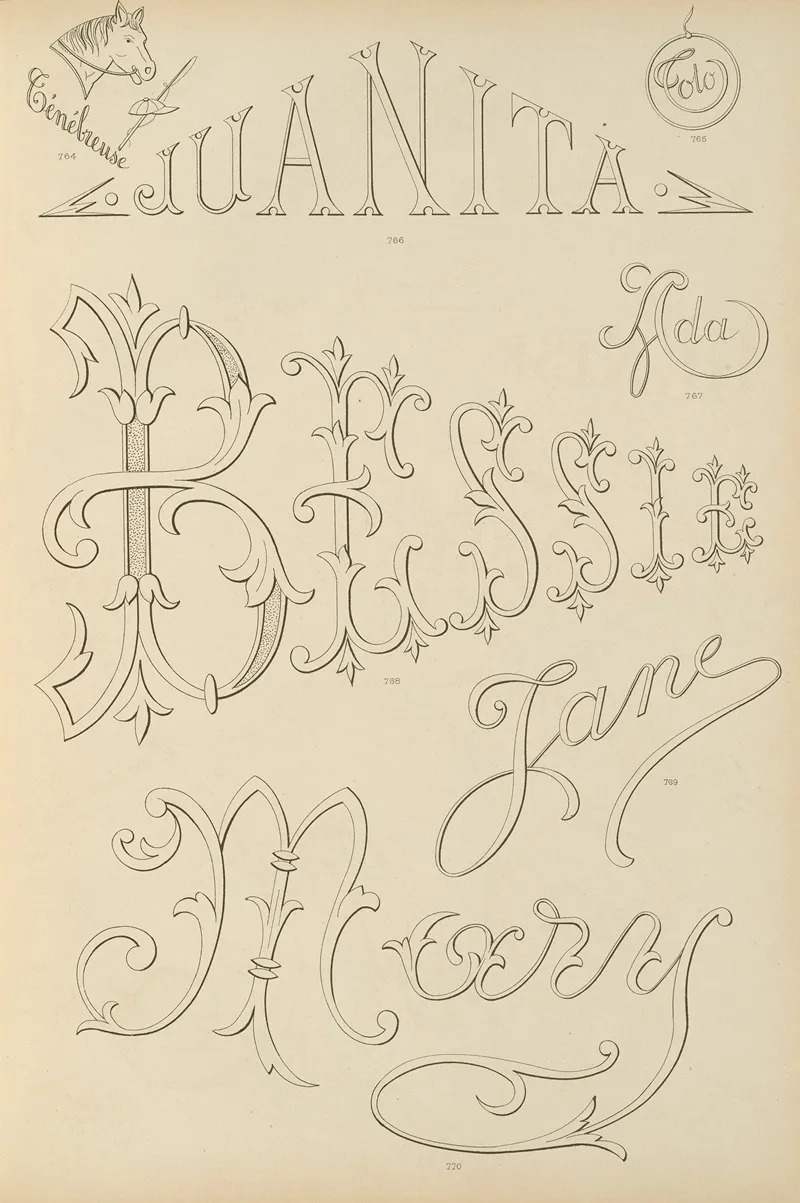 Ténébreuse
764
Toto
765
JUANITA
766
Ada
767
BESSIE
768
Jane
769
Mary
770